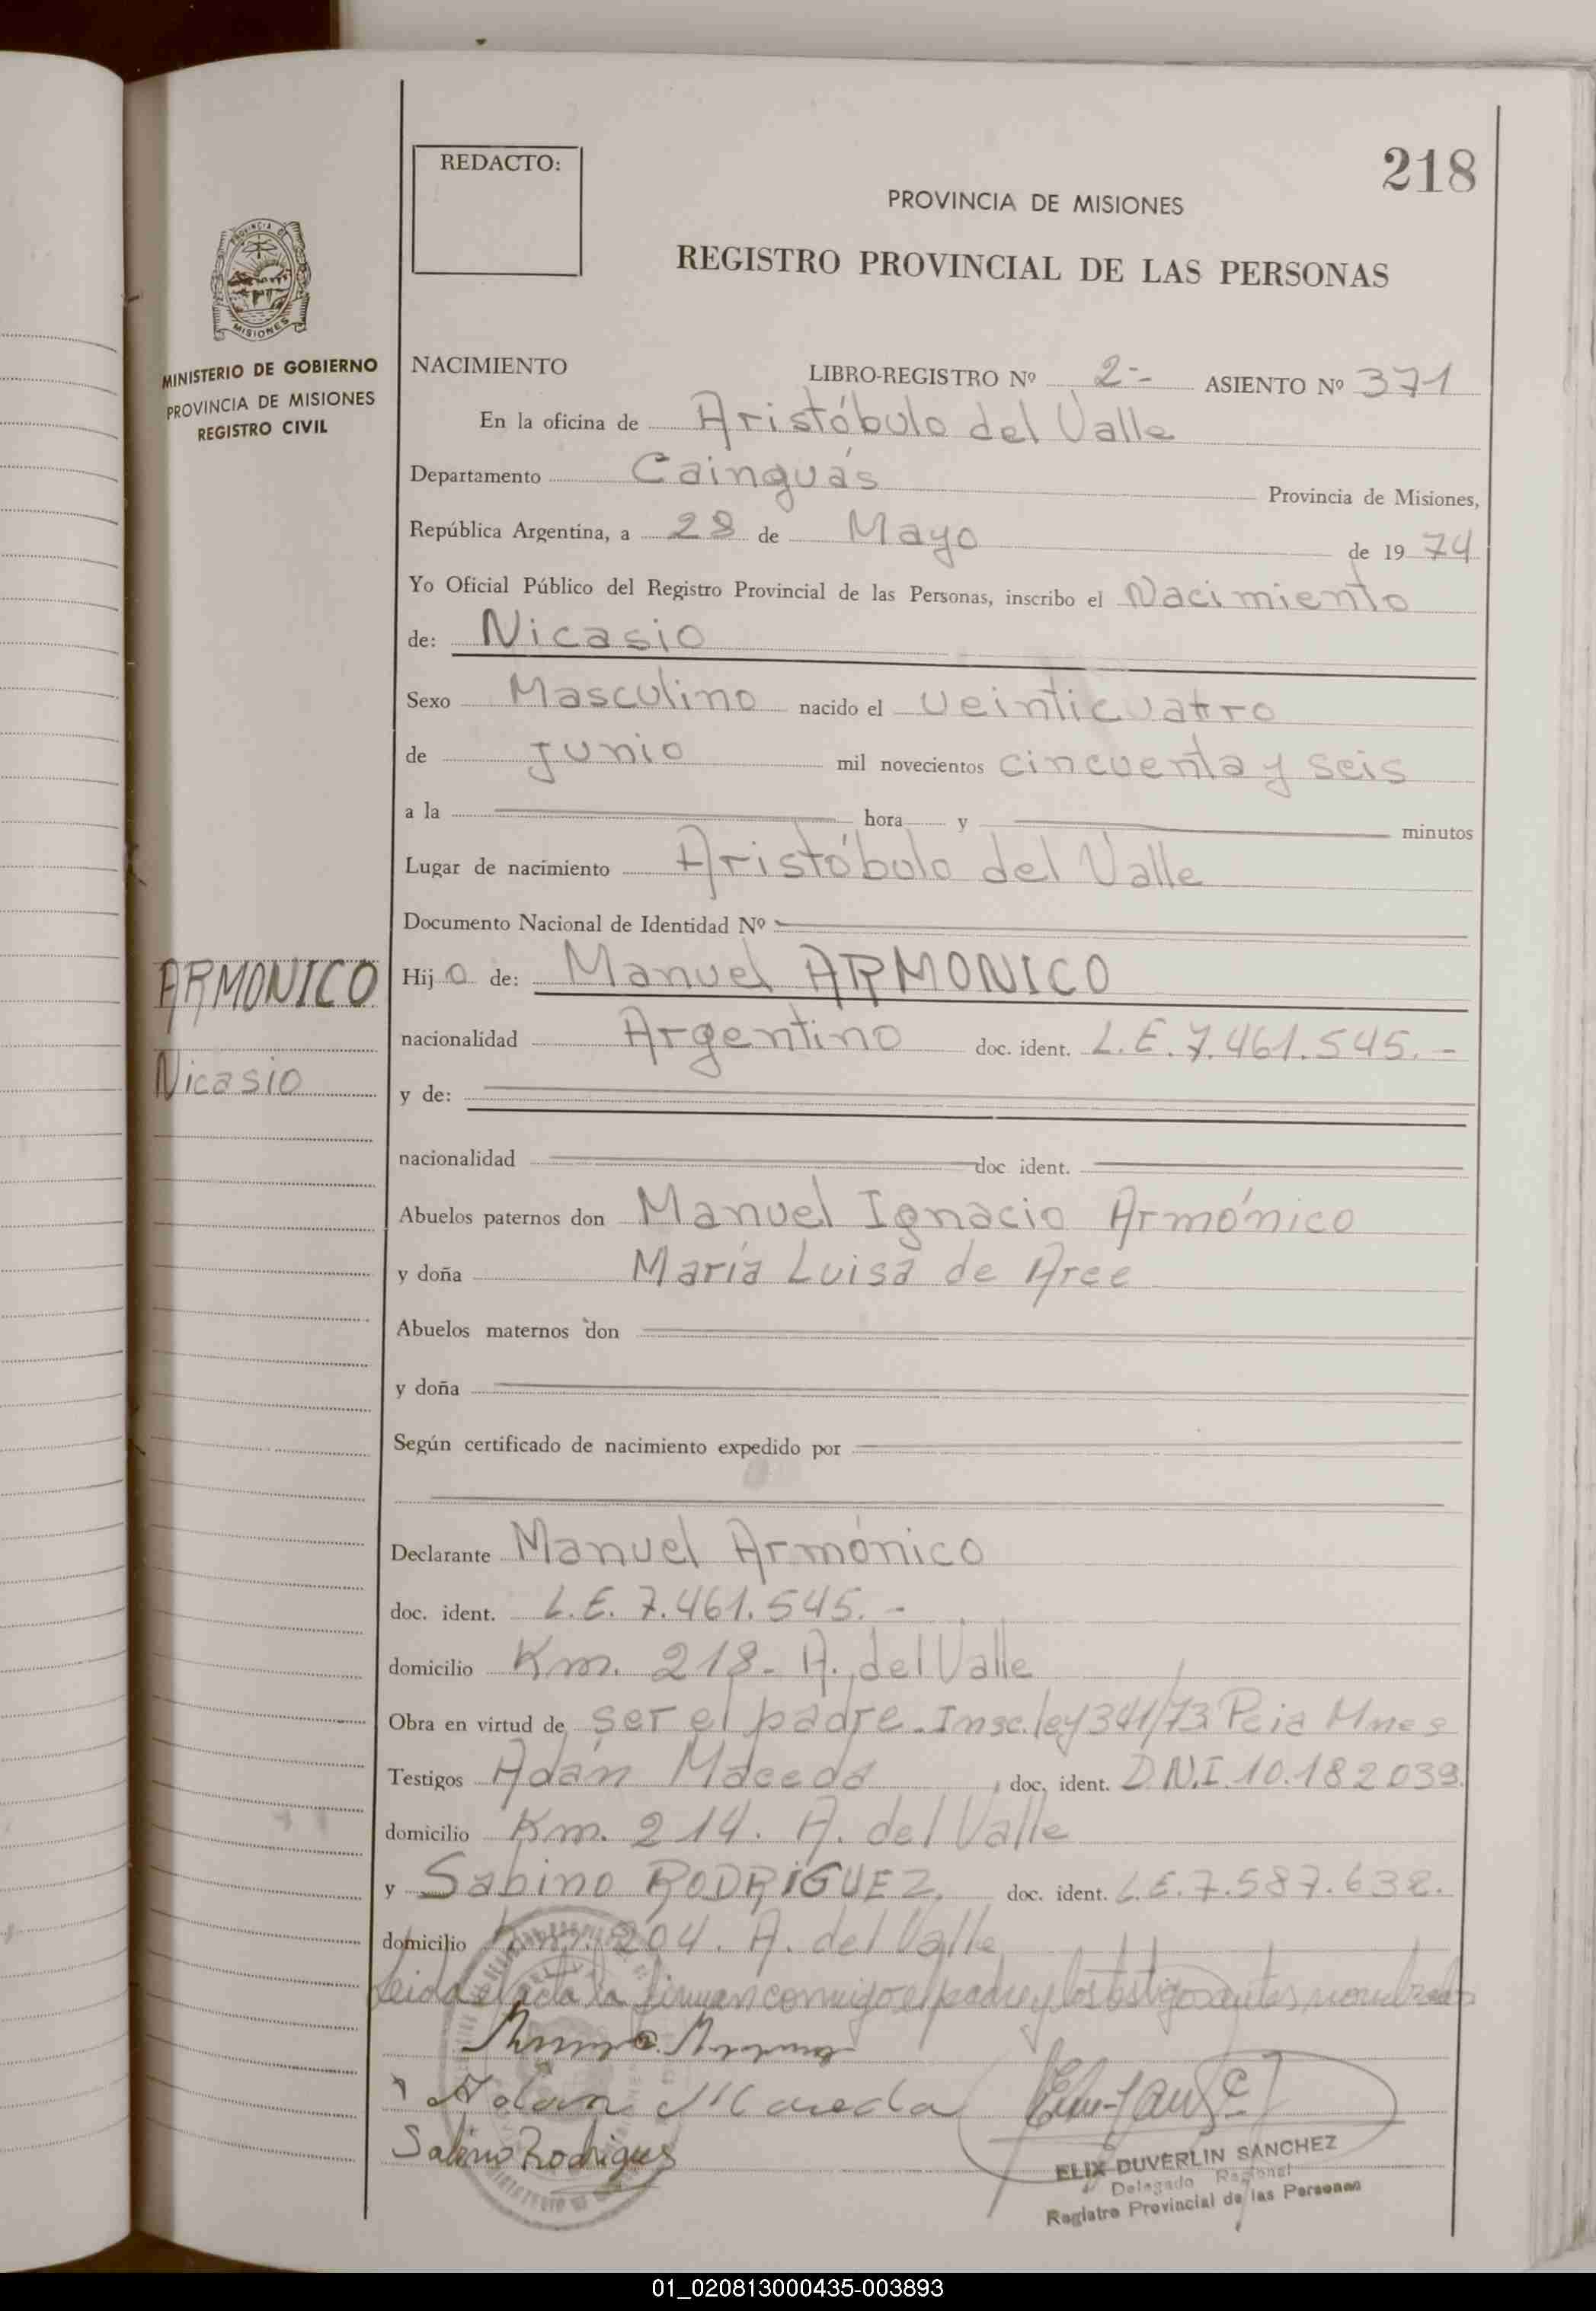 218
REDACTO:
PROVINCIA DE MISIONES
REGISTRO PROVINCIAL DE LAS PERSONAS
PROVINCIA DE
MISIONES
MINISTERIO DE GOBIERNO
PROVINCIA DE MISIONES
REGISTRO CIVIL
NACIMIENTO LIBRO-REGISTRO Nº 2-- ASIENTO Nº 371
En la oficina de Aristóbulo del Valle
Departamento Cainguás Provincia de Misiones,
República Argentina, a 28 de Mayo de 1974
Yo Oficial Público del Registro Provincial de las Personas, inscribo el Nacimiento
de: Nicasio
Sexo Masculino nacido el veinticuatro
de junio mil novecientos cincuenta y seis
a la hora y minutos
Lugar de nacimiento Aristóbulo del Valle
Documento Nacional de Identidad Nº
ARMONICO
Nicasio
Hijo de: Manuel ARMONICO
nacionalidad Argentino doc. ident. L.E. 7.461.545.-
y de:
nacionalidad doc ident.
Abuelos paternos don Manuel Ignacio Armónico
y doña María Luisa de Aree
Abuelos maternos don
y doña
Según certificado de nacimiento expedido por
Declarante Manuel Armónico
doc. ident. L.E. 7.461.545.-
domicilio Km. 218- A. del Valle
Obra en virtud de ser el padre. Insc. ley 341/73 Pcia Mnes
Testigos Adán Maceda, doc. ident. D.N.I 10.182039.
domicilio Km. 214. A. del Valle
y Sabino RODRIGUEZ, doc. ident. L.E. 7.587.632.
domicilio Km. 204. A. del Valle
Leida el acta la firman conmigo el padre y los testigos antes nombrados
Adan Maceda
Sabino Rodrigues
ELIX DUVERLIN SANCHEZ
Delegado Regional
Registro Provincial de las Personas
01_020813000435-003893